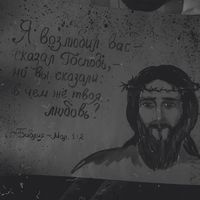 Я возлюбил вас -
сказал Господь,
но вы сказали:
в чем же твоя
любовь?
Библия - Мал. 1:2